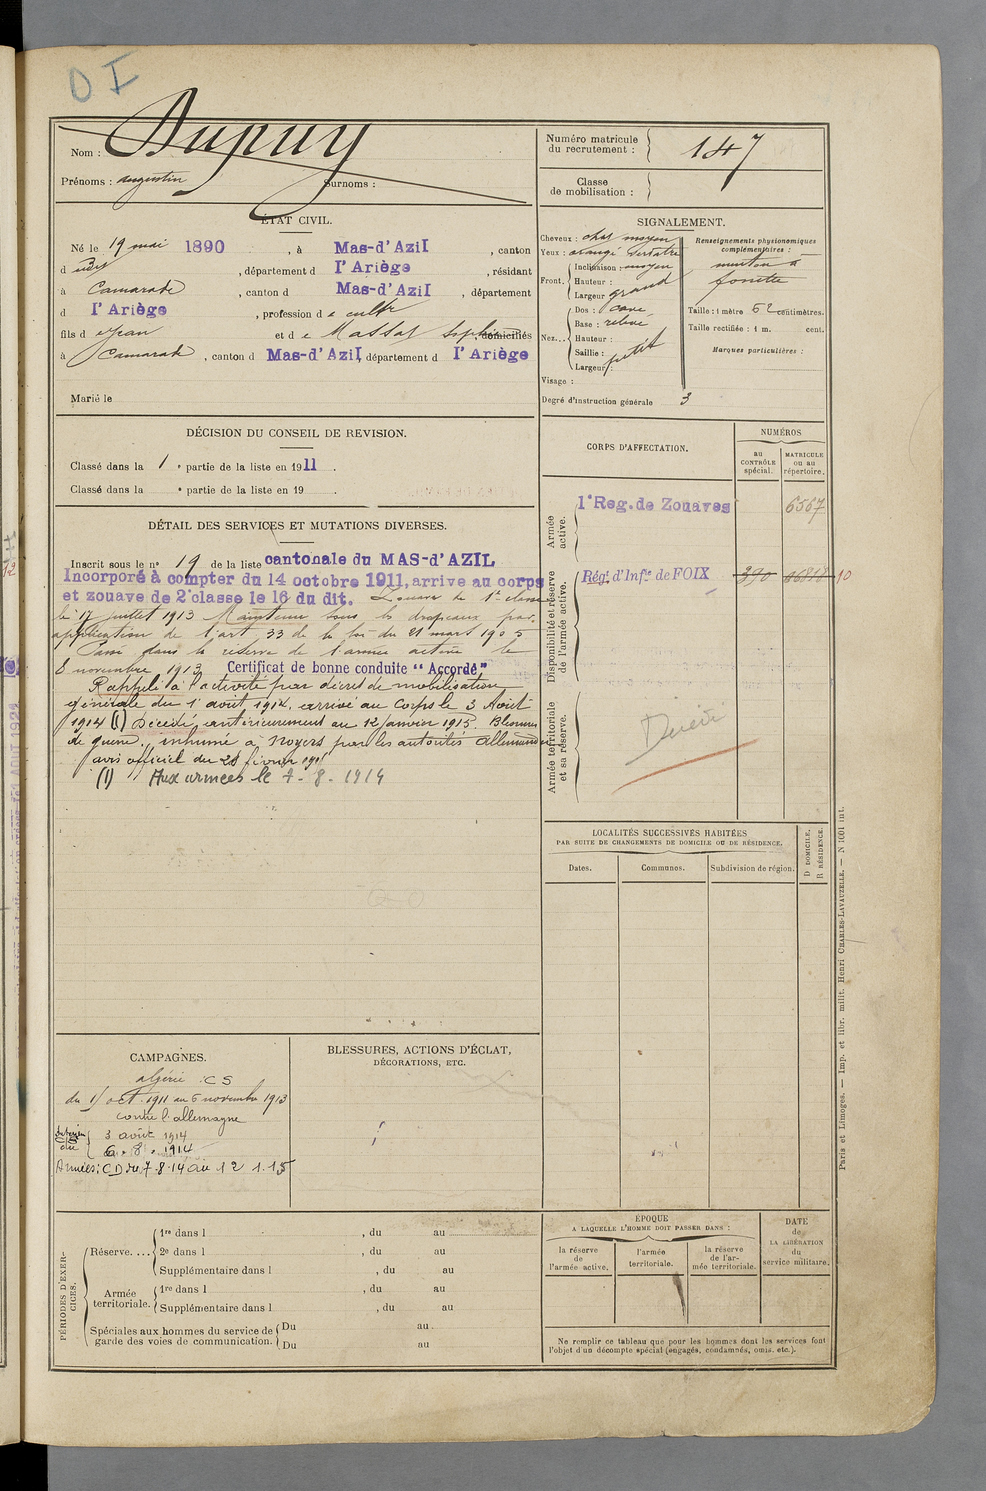 D I
Nom : Dupuy
Prénoms : Augustin Surnoms :
Numéro matricule du recrutement : 147
Classe de mobilisation :
ÉTAT CIVIL.
Né le 19 mai 1890 , à Mas-d'Azil , canton
d udy , département d l'Ariège , résidant
à Camarade , canton d Mas-d'Azil , département
d l'Ariège , profession d e cultr
fils d e Jean et d e Massat Sophie domiciliés
à Camarade , canton d Mas-d'Azil département d l'Ariège
Marié le
SIGNALEMENT.
Cheveux : chat moyen
Yeux : orangé verdatre
Front. Inclinaison : moyen
Hauteur :
Largeur grand
Nez... Dos : cave
Base : relevé
Hauteur :
Saillie :
Largeur : petit
Visage :
Degré d'instruction générale 3
Renseignements physionomiques complémentaires :
menton à
fossette
Taille : 1 mètre 62 centimètres.
Taille rectifiée : 1 m. cent.
Marques particulières :
DÉCISION DU CONSEIL DE REVISION.
Classé dans la 1 e partie de la liste en 1911 .
Classé dans la e partie de la liste en 19 .
DÉTAIL DES SERVICES ET MUTATIONS DIVERSES.
Inscrit sous le n° 19 de la liste cantonale du MAS-d'AZIL
Incorporé à compter du 14 octobre 1911, arrive au corps
et zouave de 2e classe le 16 du dit. Zouave de 1e classe
le 17 juillet 1913 Maintenu sous les drapeaux par
application de l'art 33 de la loi du 21 mars 1905
Passé dans la réserve de l'armée active le
8 novembre 1913 Certificat de bonne conduite "Accordé"
Rappelé à l'activité par décret de mobilisation
générale du 1 août 1914, arrivé au Corps le 3 Août
1914 (1) Décédé antérieurement au 12 janvier 1915 Blessures
de guerre, inhumé à Noyers par les autorités Allemandes
avis officiel du 28 février 191
(1) Aux armées le 7-8-1914
CORPS D'AFFECTATION.
NUMÉROS
au CONTRÔLE spécial.
MATRICULE ou au répertoire.
Armée active.
1e Reg. de Zouaves 6567
Disponibilité et réserve de l'armée active.
Rég. d'Infie de FOIX 390 10
Armée territoriale et sa réserve.
Décédé
LOCALITÉS SUCCESSIVES HABITÉES
PAR SUITE DE CHANGEMENTS DE DOMICILE OU DE RÉSIDENCE.
Dates. Communes. Subdivision de région. D DOMICILE, R RÉSIDENCE.
CAMPAGNES.
algérie : CS
du 15 oct. 1911 au 6 novembre 1913
contre l'allemagne
Intérieur du 3 août 1914
6. 8. 1914
Armées : CD du 7.8.14 au 12.1.15
BLESSURES, ACTIONS D'ÉCLAT,
DÉCORATIONS, ETC.
PÉRIODES D'EXERCICES.
Réserve.... 1re dans l , du au
2e dans l , du au
Supplémentaire dans l , du au
Armée territoriale. 1re dans l , du au
Supplémentaire dans l , du au
Spéciales aux hommes du service de garde des voies de communication. Du au
Du au
ÉPOQUE
A LAQUELLE L'HOMME DOIT PASSER DANS :
la réserve de l'armée active.
l'armée territoriale.
la réserve de l'armée territoriale.
DATE de LA LIBÉRATION du service militaire.
Ne remplir ce tableau que pour les hommes dont les services font
l'objet d'un décompte spécial (engagés, condamnés, omis, etc.).
Paris et Limoges. — Imp. et libr. milit. Henri CHARLES-LAVAUZELLE. — N 1001 int.